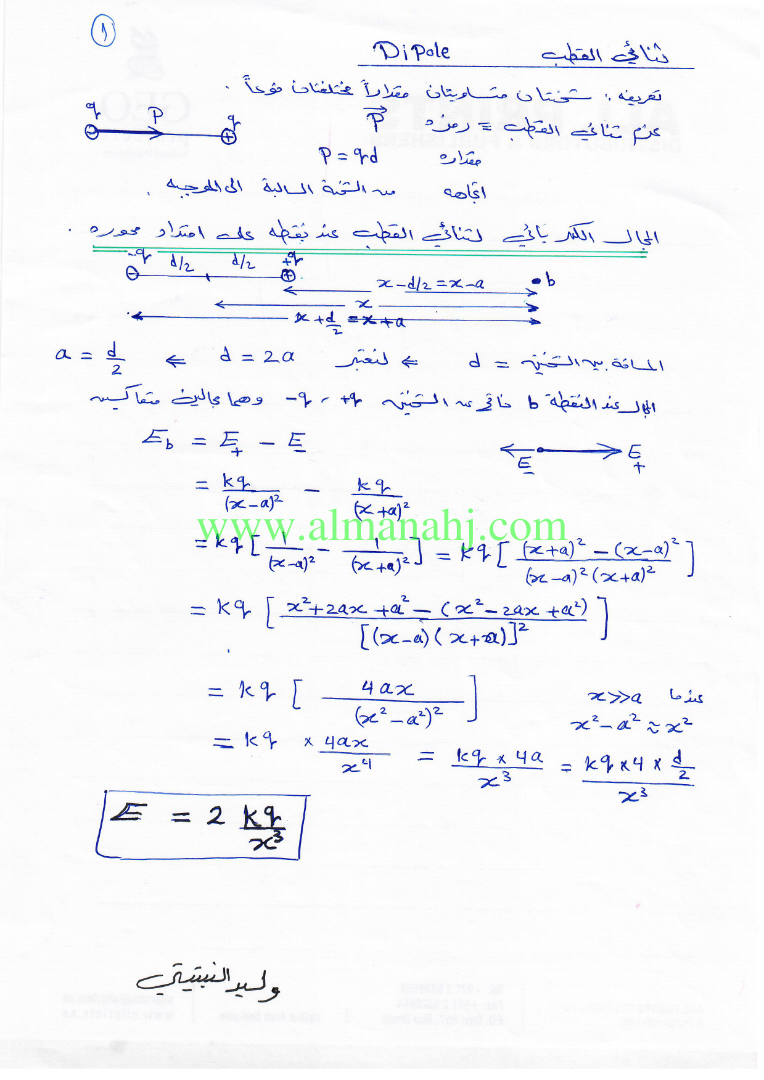 1
ثنائي القطب Dipole
تعريفه : شحنتان متساويتان مقداراً مختلفتان نوعاً .
q P q
عزم ثنائي القطب = رمزه P
مقداره P = qd
اتجاهه من الشحنة السالبة الى الموجبه .
المجال الكهربائي لثنائي القطب عند نقطه على امتداد محوره .
-q d/2 d/2 +q
x - d/2 = x - a b
x
x + d/2 = x + a
المسافة بين الشحنتين = d ⇐ لنعتبر d = 2a ⇐ a = d/2
المجال عند النقطة b ناتج عن الشحنتين +q ، -q وهما مجالين متعاكسين
E_b = E_+ - E_-
E_- E_+
= kq/(x-a)² - kq/(x+a)²
www.almanahj.com
= kq [ 1/(x-a)² - 1/(x+a)² ] = kq [ ((x+a)² - (x-a)²) / ((x-a)²(x+a)²) ]
= kq [ (x² + 2ax + a² - (x² - 2ax + a²)) / [(x-a)(x+a)]² ]
= kq [ 4ax / (x² - a²)² ]
عندما x >> a
x² - a² ≈ x²
= kq × 4ax/x⁴ = kq × 4a / x³ = kq × 4 × d/2 / x³
E = 2 kq/x³
وليد النبتيتي